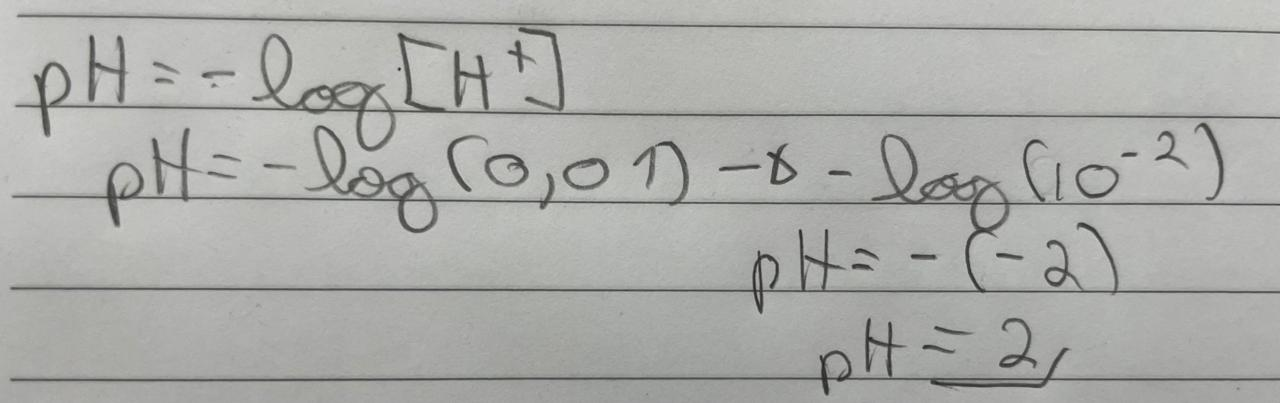 pH = - log [H⁺]
pH = - log (0,01) → - log (10⁻²)
pH = - (-2)
pH = 2